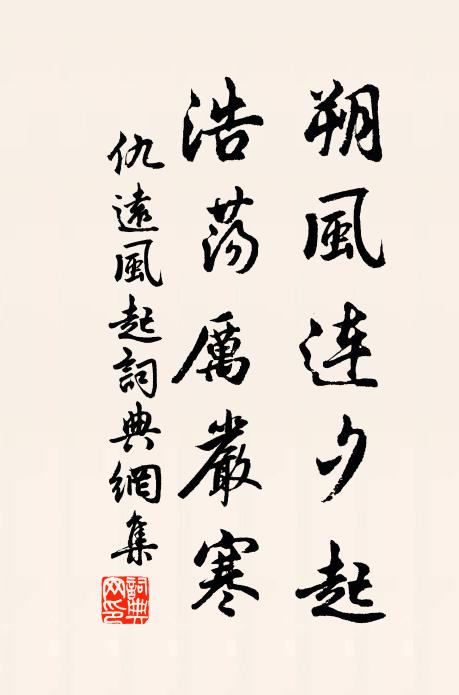 朔風連夕起
浩蕩厲嚴寒
仇遠風起詞典網集
詞典
网印